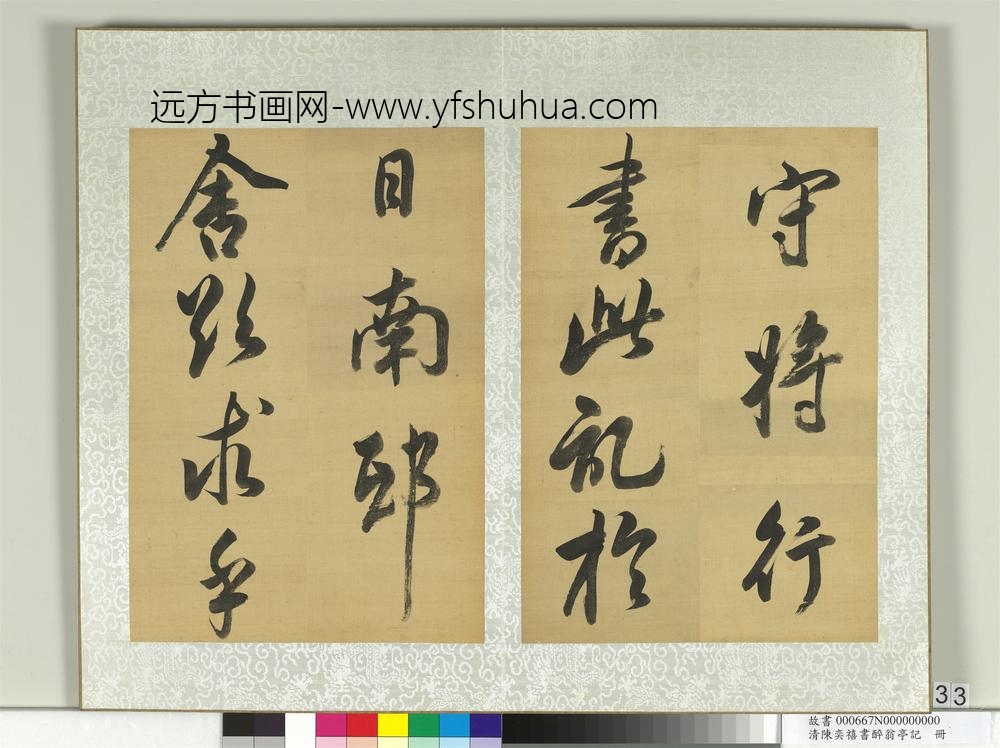 远方书画网-www.yfshuhua.com
守將行
書此於
目南邸
舍求乎
33
故書 000667N000000000
清陳奕禧書醉翁亭記 冊